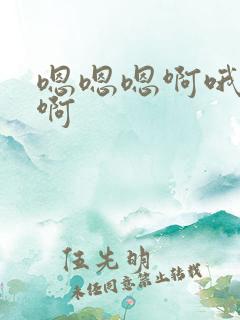 嗯嗯嗯啊哦
啊
伍先明
未经同意禁止转载